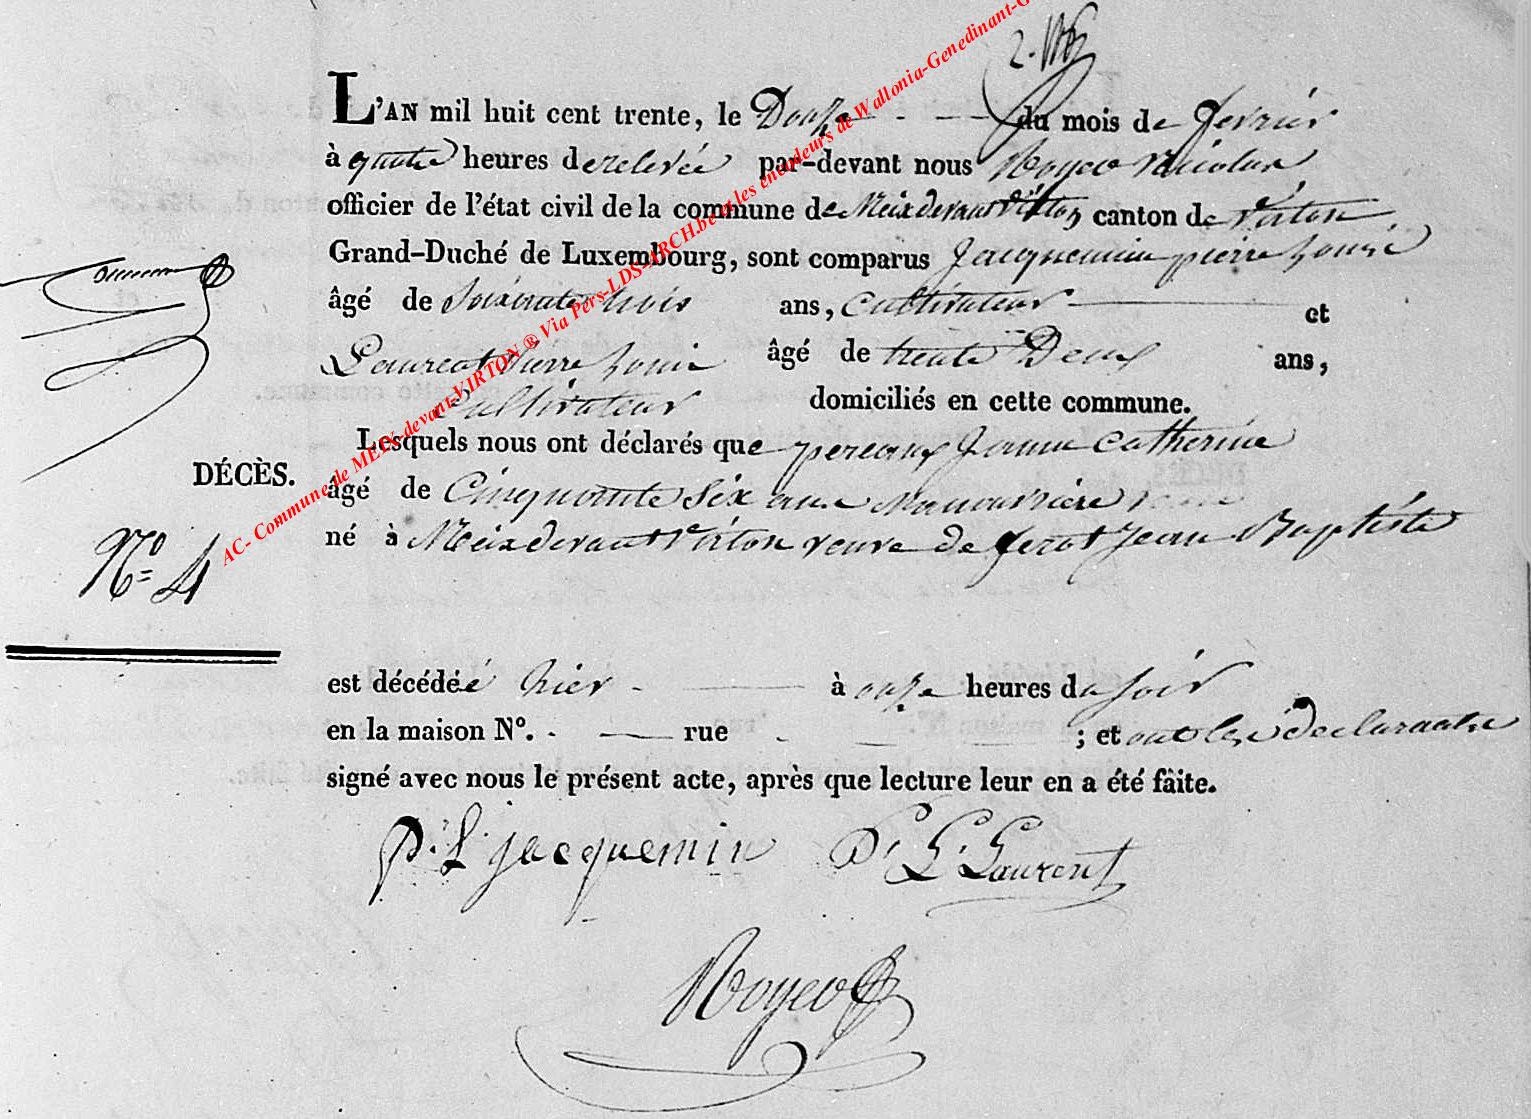 L'AN mil huit cent trente, le Douze du mois de fevrier
à quatre heures de relevée par-devant nous Royeo Nicolas
officier de l'état civil de la commune de Meix devant Virton canton de Virton
Grand-Duché de Luxembourg, sont comparus Jacquemin pierre Louis
âgé de Soixante trois ans, Cultivateur et
Laurent Pierre Louis âgé de trente Deux ans,
Cultivateur domiciliés en cette commune.
DÉCÈS.
Lesquels nous ont déclarés que Jeanne Catherine
âgé de Cinquante Six ans Manouvrière
né à Meix devant Virton veuve de Jean Baptiste
N° 4
est décédée hier à onze heures du soir
en la maison N°. rue ; et ont les déclarants
signé avec nous le présent acte, après que lecture leur en a été faite.
P. L. jacquemin P. L. Laurent
Royeo
AC- Commune de MEIX-devant-VIRTON ® Via Pers-LDS-ARCH.be et les encodeurs de Wallonia-Genedinant-G